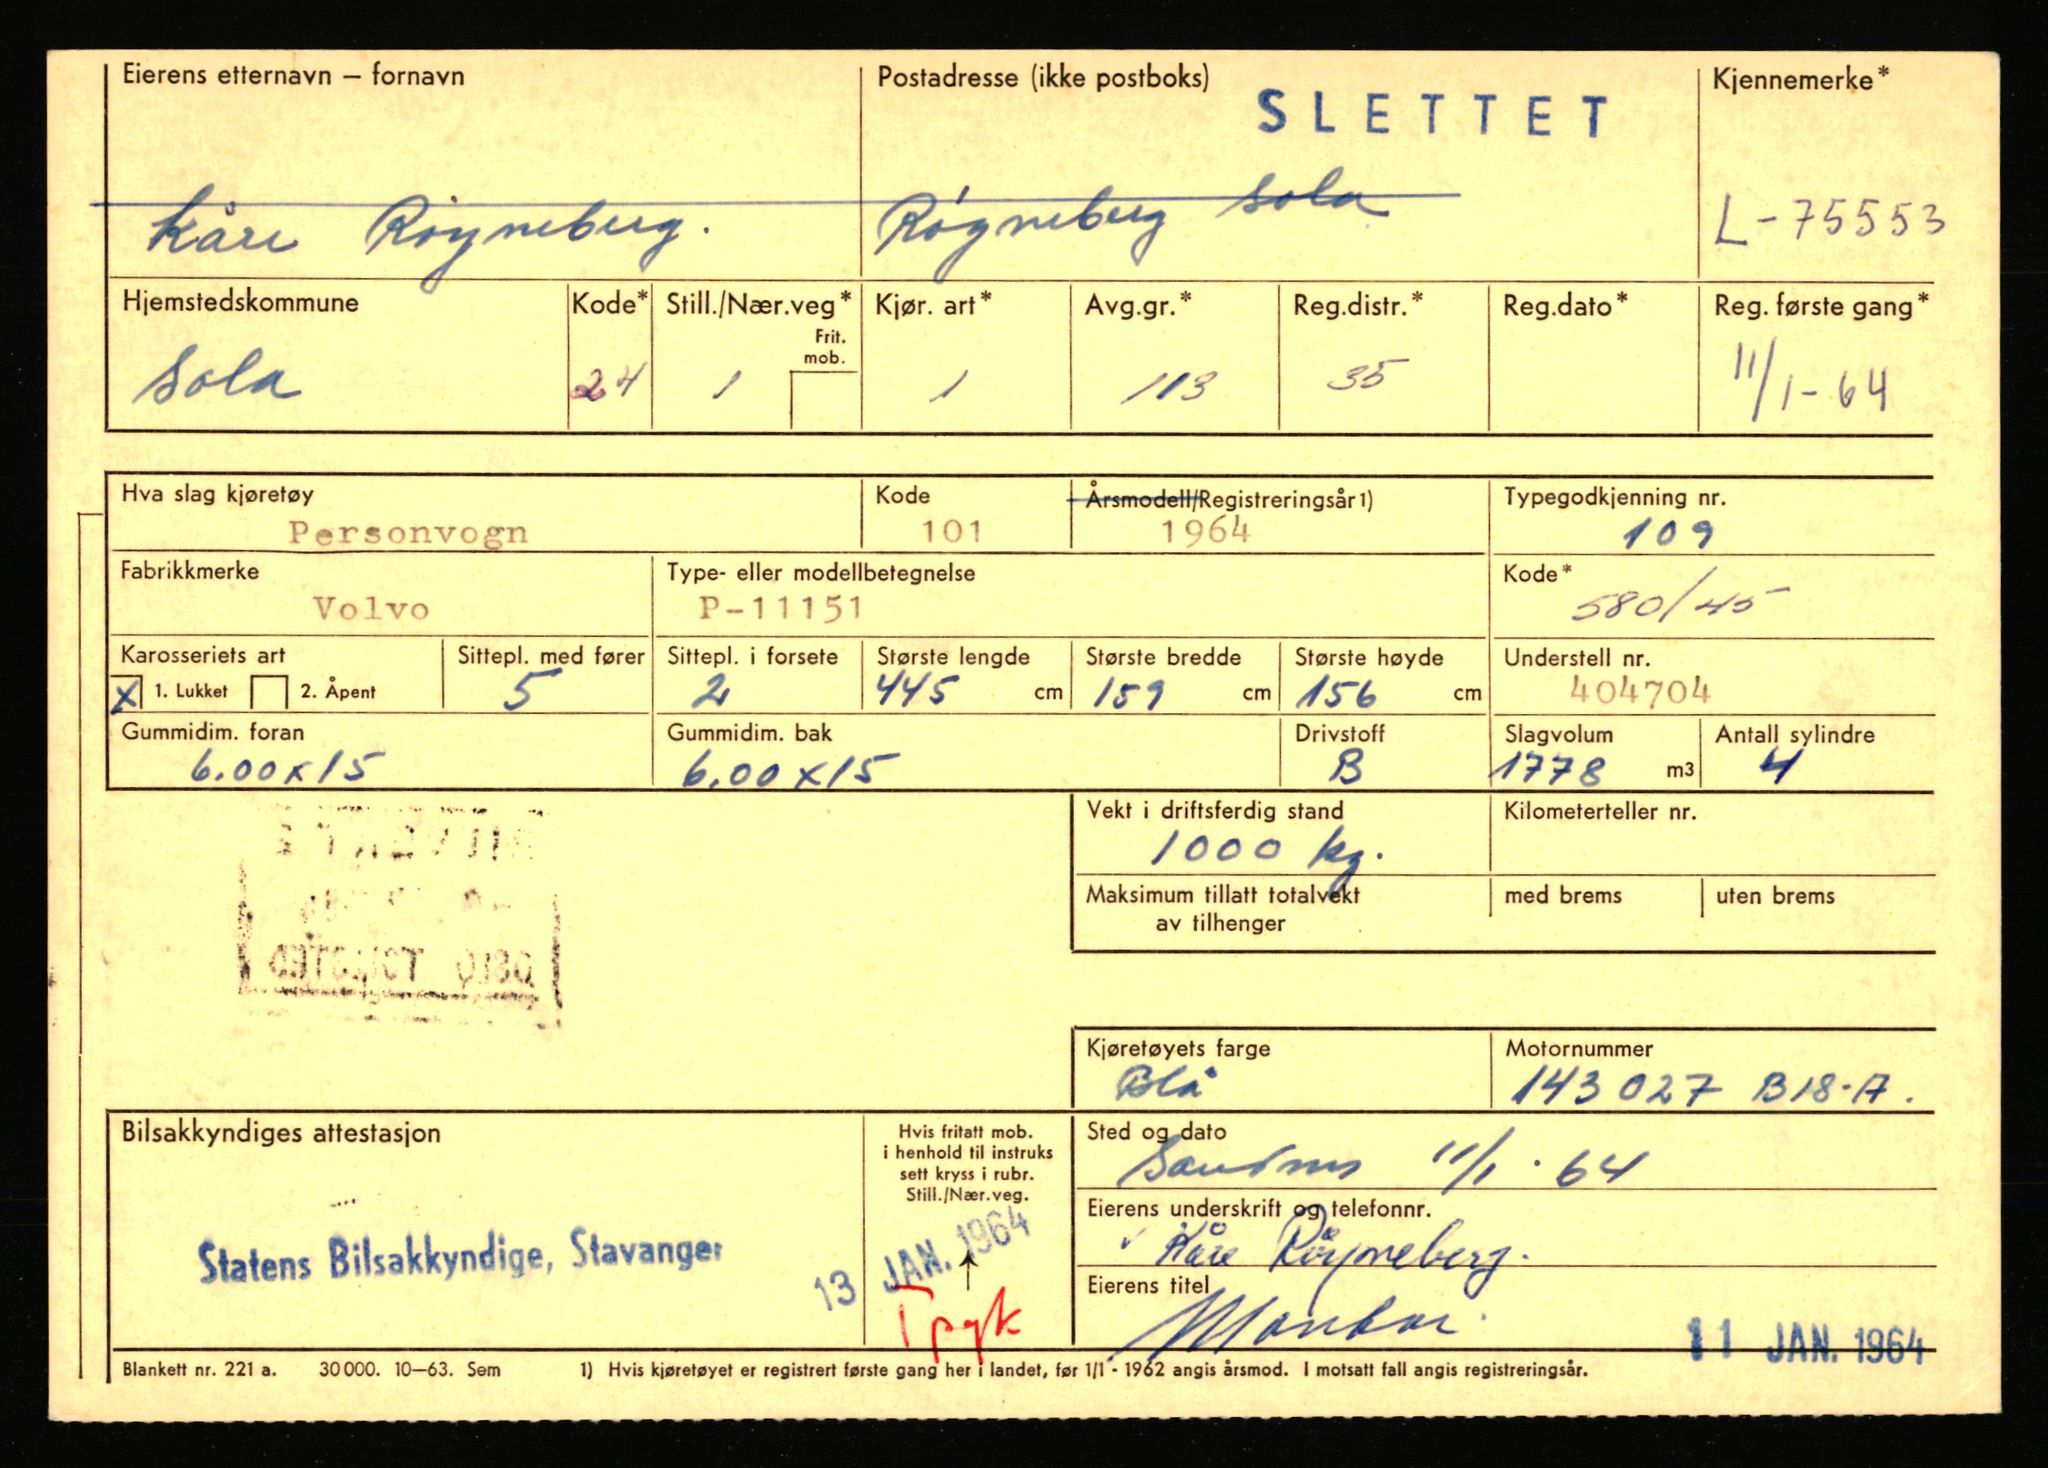 Eierens etternavn – fornavn Postadresse (ikke postboks) Kjennemerke*
SLETTET
Kåre Røyneberg. Røyneberg Sola L-75553
Hjemstedskommune Kode* Still./Nær.veg* Kjør. art* Avg.gr.* Reg.distr.* Reg.dato* Reg. første gang*
Frit.
mob.
Sola 24 1 1 113 35 11/1-64
Hva slag kjøretøy Kode Årsmodell/Registreringsår1) Typegodkjenning nr.
Personvogn 101 1964 109
Fabrikkmerke Type- eller modellbetegnelse Kode*
Volvo P-11151 580/45
Karosseriets art Sittepl. med fører Sittepl. i forsete Største lengde Største bredde Største høyde Understell nr.
x 1. Lukket 2. Åpent 5 2 445 cm 159 cm 156 cm 404704
Gummidim. foran Gummidim. bak Drivstoff Slagvolum Antall sylindre
6.00x15 6.00x15 B 1778 m3 4
Vekt i driftsferdig stand Kilometerteller nr.
1000 kg.
Maksimum tillatt totalvekt med brems uten brems
av tilhenger
OSLO TOLLSTED
Kjøretøyets farge Motornummer
Blå 143027 B18-A.
Bilsakkyndiges attestasjon Hvis fritatt mob. Sted og dato
i henhold til instruks
sett kryss i rubr.
Still./Nær.veg.
Sandnes 11/1.64
Eierens underskrift og telefonnr.
Kåre Røyneberg.
Statens Bilsakkyndige, Stavanger 13 JAN. 1964
Eierens titel
11 JAN. 1964
Blankett nr. 221 a. 30000. 10–63. Sem 1) Hvis kjøretøyet er registrert første gang her i landet, før 1/1 - 1962 angis årsmod. I motsatt fall angis registreringsår.